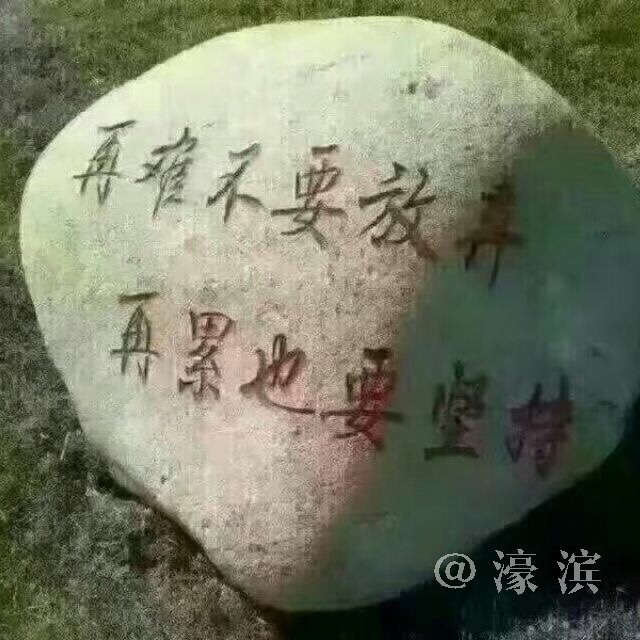 再难不要放弃
再累也要坚持
@濠滨